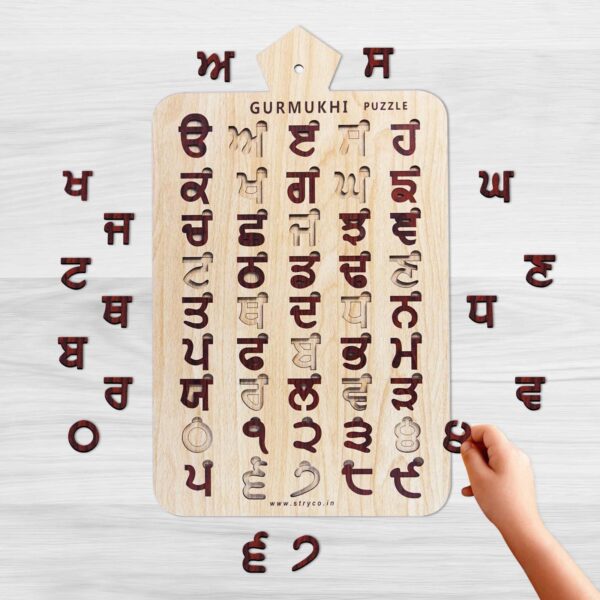 ਅ ਸ
GURMUKHI PUZZLE
ੳ ਅ ੲ ਸ ਹ
ਕ ਖ ਗ ਘ ਙ
ਚ ਛ ਜ ਝ ਞ
ਟ ਠ ਡ ਢ ਣ
ਤ ਥ ਦ ਧ ਨ
ਪ ਫ ਬ ਭ ਮ
ਯ ਰ ਲ ਵ ੜ
੦ ੧ ੨ ੩ ੪
੫ ੬ ੭ ੮ ੯
www.stryco.in
ਖ
ਜ
ਟ
ਥ
ਬ
ਰ
੦
ਘ
ਣ
ਧ
ਵ
੪
੬ ੭